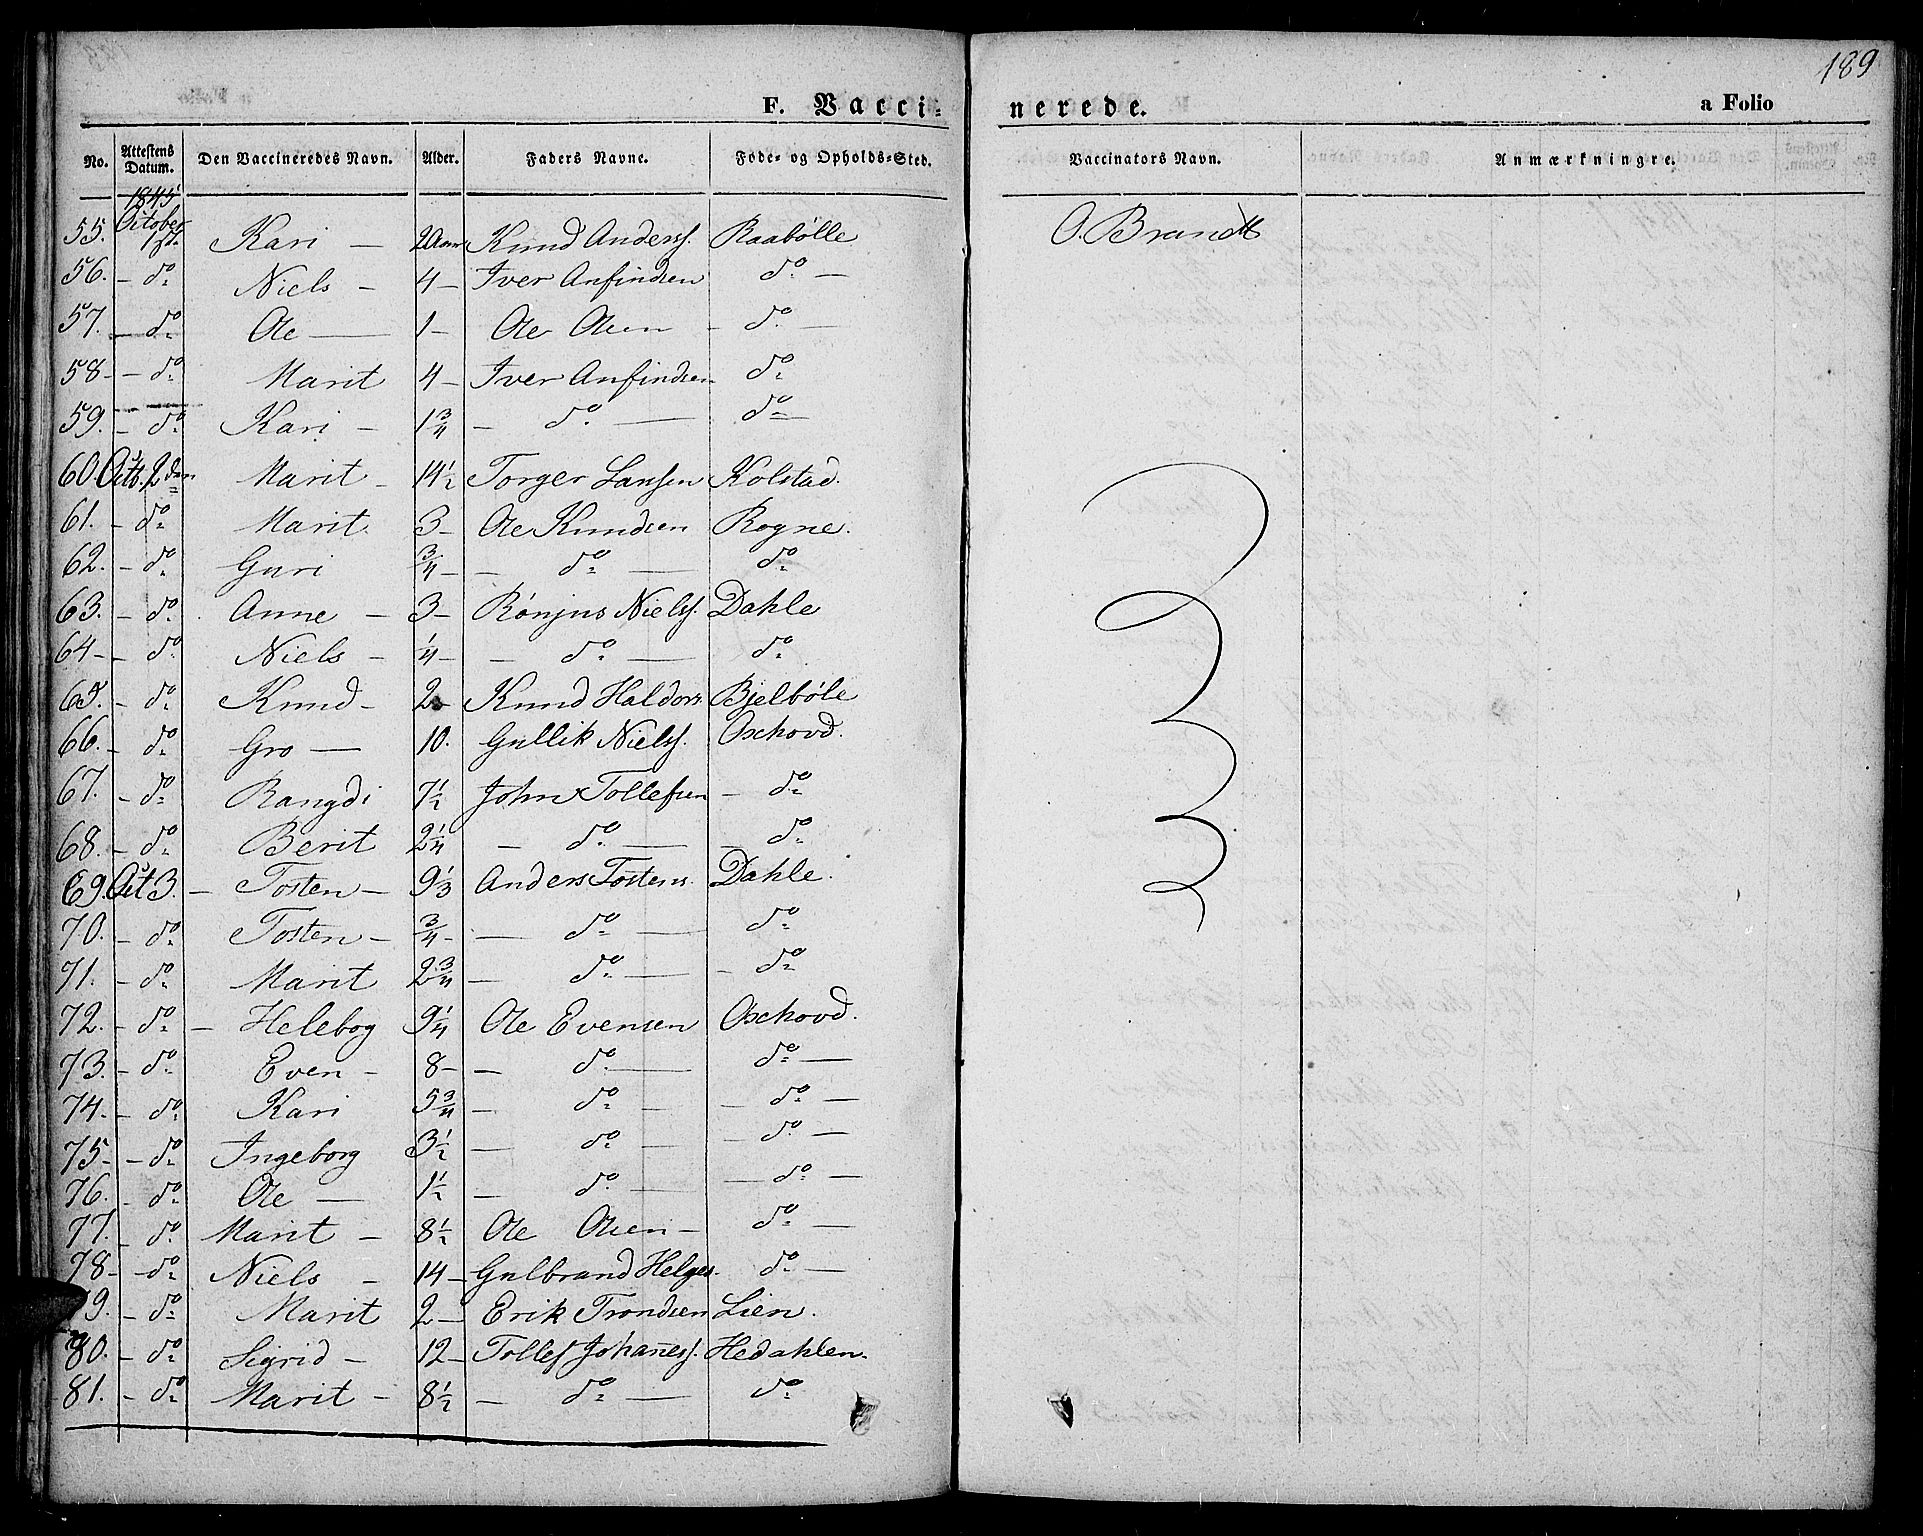 189
F. Vacci-nerede. a Folio
No. Attestens Datum. Den Vaccineredes Navn. Alder. Faders Navne. Føde- og Opholds-Sted. Vaccinators Navn. Anmærkningre.
1845
55. October 1ste Kari — 2 Aar Knud Anderss. Raabølle O. Brandt
56. — do Niels — 4 — Iver Anfindsen do —
57. — do Ole — 1 — Ole Olsen — do —
58 — — do Marit 4 — Iver Anfindsen do
59. — do Kari — 1 3/4 — do — do —
60. Octb. 2den Marit — 14 1/2 Torger Larsen Kolstad.
61. — do Marit. 3 — Ole Knudsen Rogne.
62. — do Guri 3/4 — — do — do
63. — do Anne — 3 — Rönjus Nielss. Dahle
64 — — do Niels — 1/4 — — do — do
65. — do Knud — 2 — Knud Haldors. Bjelbøle
66. — do Gro — 10. Gullik Nielss. Oxehovd.
67. — do Rangdi 7 1/2 John Tollefsen — do
68. — do Berit 2 1/4 — do — — do
69. Oct 3. — Tosten — 9 1/3 Anders Tostens. Dahle.
70. — do Tosten — 3/4 — — do — do
71. — do Marit 2 3/4 — do — — do
72. — do — Helebog 9 1/4 Ole Evensen Oxehovd.
73. — do Even — 8 — — do — do —
74. — do Kari 5 3/4 — do — — do —
75 — — do Ingeborg 3 1/2 — do — — do —
76. — do Ole — 1 1/2 — do — — do —
77. — do Marit — 8 1/2 Ole Olsen — do —
78 — — do Niels — 14 — Gulbrand Helges. do —
79. — do Marit 2 — Erik Trondsen Lien.
80. — do Sigrid — 12 — Tollef Johaness. Hedahlen.
81. — do Marit — 8 1/2 — do — do